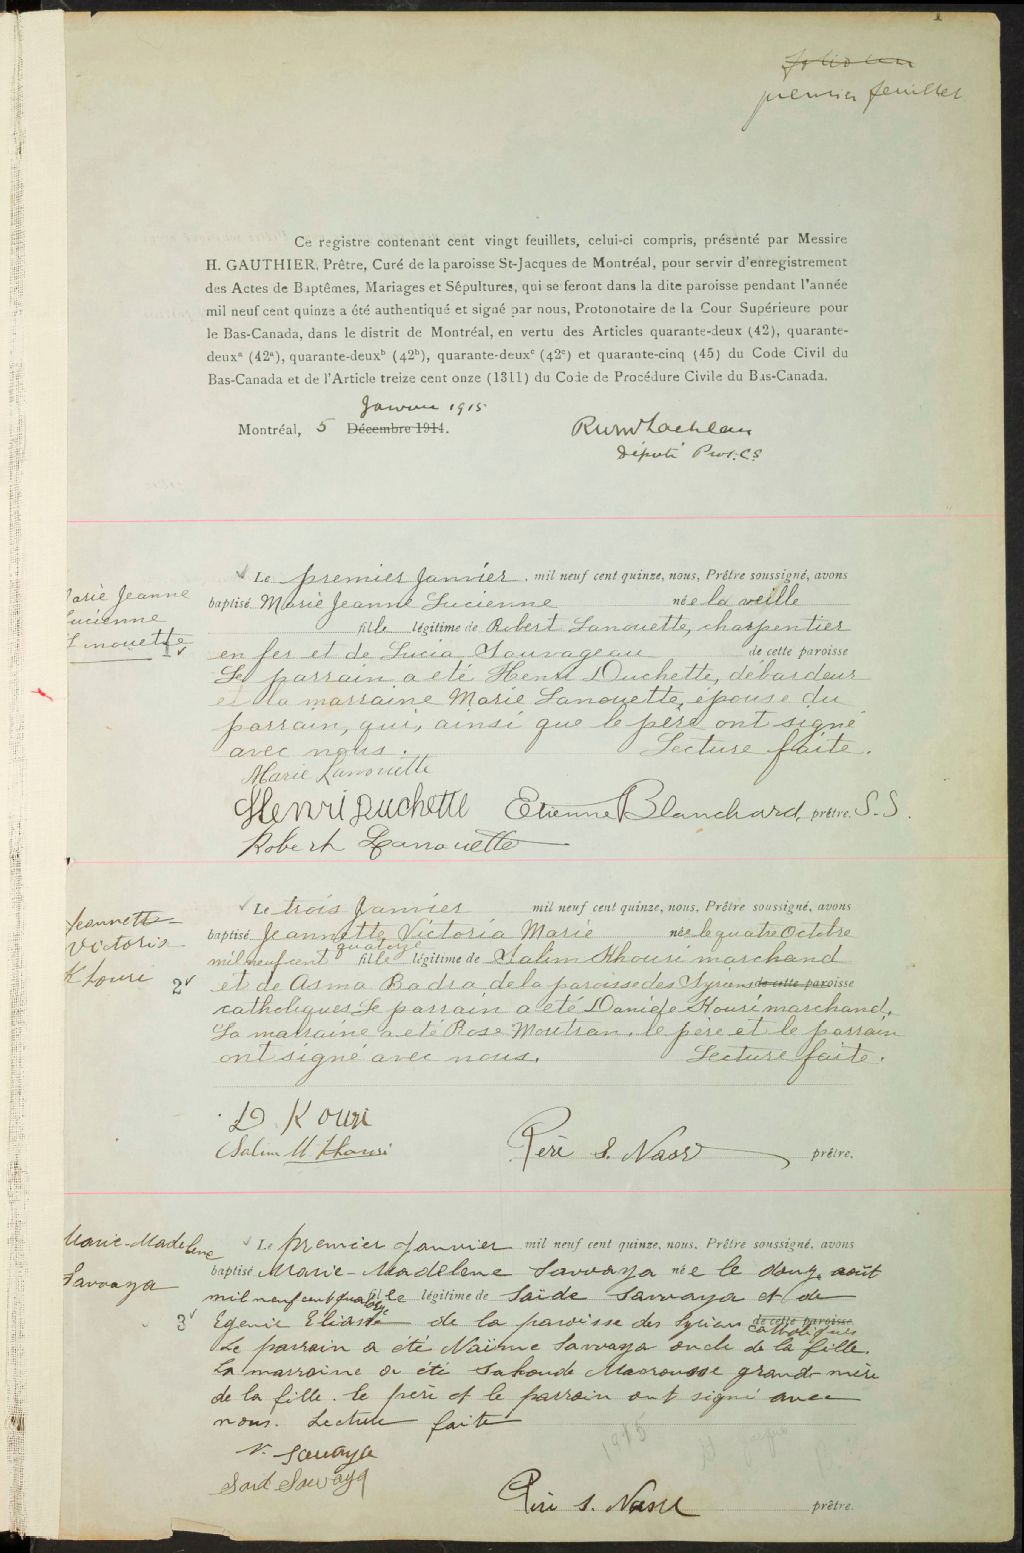 premier feuillet
Ce registre contenant cent vingt feuillets, celui-ci compris, présenté par Messire
H. GAUTHIER, Prêtre, Curé de la paroisse St-Jacques de Montréal, pour servir d'enregistrement
des Actes de Baptêmes, Mariages et Sépultures, qui se feront dans la dite paroisse pendant l'année
mil neuf cent quinze a été authentiqué et signé par nous, Protonotaire de la Cour Supérieure pour
le Bas-Canada, dans le distrit de Montréal, en vertu des Articles quarante-deux (42), quarante-
deuxᵃ (42ᵃ), quarante-deuxᵇ (42ᵇ), quarante-deuxᶜ (42ᶜ) et quarante-cinq (45) du Code Civil du
Bas-Canada et de l'Article treize cent onze (1311) du Code de Procédure Civile du Bas-Canada.
Janvier 1915
Montréal, 5 Décembre 1914.
Député Prot. C.S
Le premier Janvier mil neuf cent quinze, nous, Prêtre soussigné, avons
baptisé Marie Jeanne Lucienne née la veille
fille légitime de Robert Lanouette, charpentier
en fer et de Lucia Sauvageau de cette paroisse
Le parrain a été Henri Duchette, débardeur
et la marraine Marie Lanouette, épouse du
parrain, qui, ainsi que le père ont signé
avec nous. Lecture faite.
Marie Jeanne
Lucienne
Lanouette
1
Marie Lanouette
Henri Duchette Etienne Blanchard, prêtre. S.S.
Robert Lanouette
Jeannette
Victoria
Khouri
2
Le trois Janvier mil neuf cent quinze, nous, Prêtre soussigné, avons
baptisé Jeannette Victoria Marie née le quatre Octobre
mil neuf cent quatorze fille légitime de Salim Khouri marchand
et de Asma Badra, de la paroisse des Syriens de cette paroisse
catholiques. Le parrain a été Daniel Kouri marchand.
La marraine a été Rose Moutran. le père et le parrain
ont signé avec nous. Lecture faite.
D. Kouri
Salim M Khouri Père S. Nasr prêtre.
Marie-Madelene
Sawaya
3
Le premier Janvier mil neuf cent quinze, nous, Prêtre soussigné, avons
baptisé Marie-Madelene Sawaya née le douze août
mil neuf cent quatorze fille légitime de Saïde Sawaya et de
Egenie de la paroisse des Syrian de cette paroisse
catholiques
Le parrain a été Naïme Sawaya oncle de la fille.
La marraine a été grand-mère
de la fille. le père et le parrain ont signé avec
nous. Lecture faite
N. Sawaya
Said Sawaya
Père S. Nasr prêtre.
1915